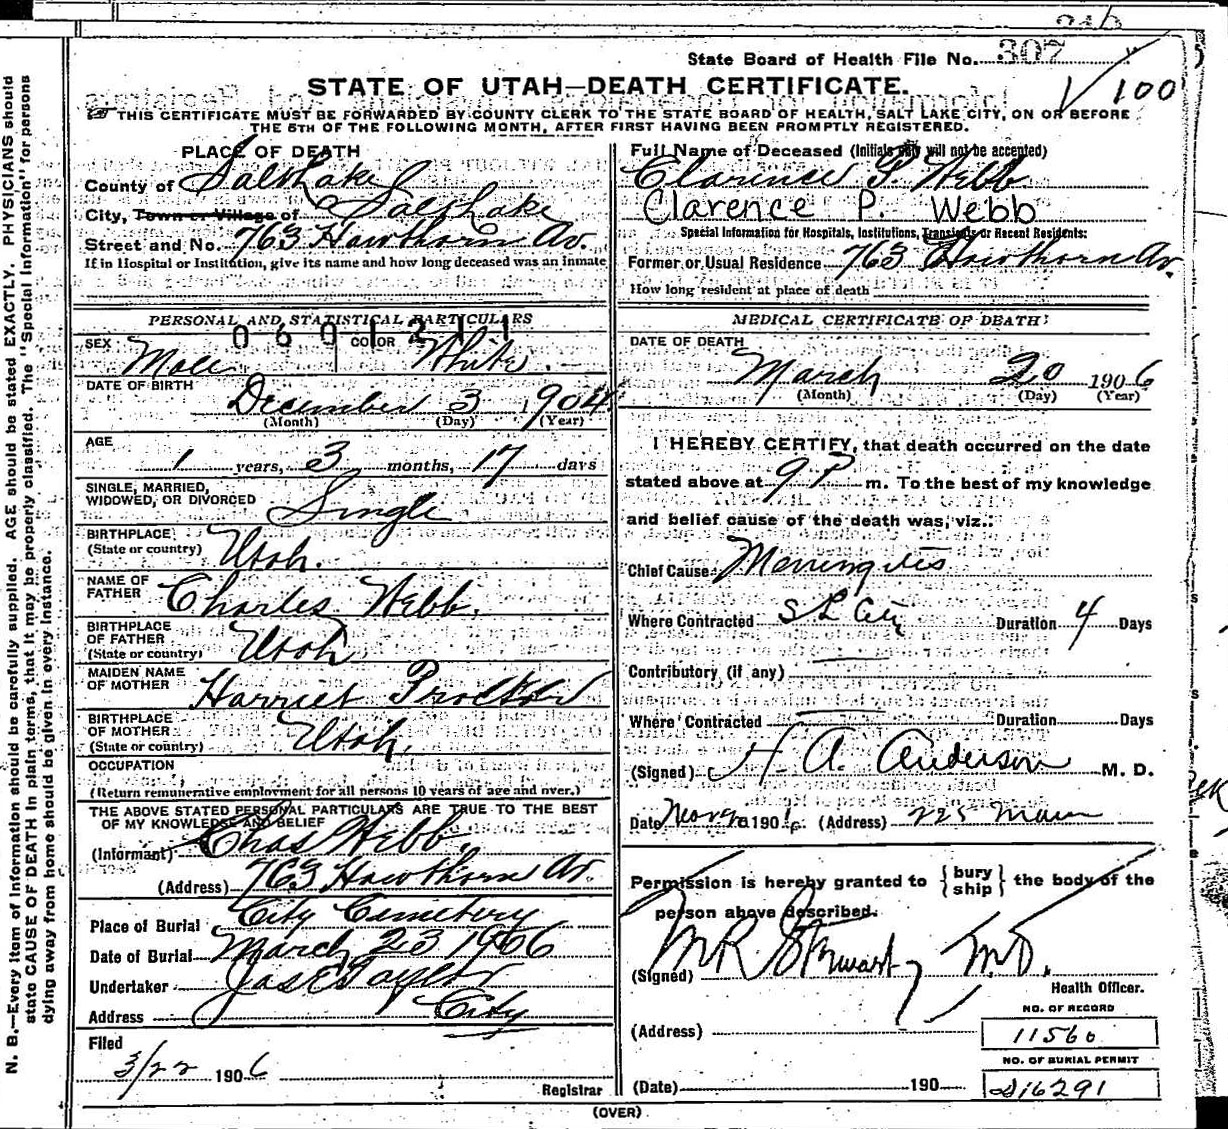 State Board of Health File No. 307
1/100
STATE OF UTAH—DEATH CERTIFICATE.
THIS CERTIFICATE MUST BE FORWARDED BY COUNTY CLERK TO THE STATE BOARD OF HEALTH, SALT LAKE CITY, ON OR BEFORE
THE 5TH OF THE FOLLOWING MONTH, AFTER FIRST HAVING BEEN PROMPTLY REGISTERED.
PLACE OF DEATH
County of Salt Lake
City, Town or Village of Salt Lake
Street and No. 763 Hawthorn Av.
If in Hospital or Institution, give its name and how long deceased was an inmate
Full Name of Deceased (Initials only will not be accepted)
Clarence P. Webb
Clarence P. Webb
Special Information for Hospitals, Institutions, Transients or Recent Residents:
Former or Usual Residence 763 Hawthorn Av.
How long resident at place of death
PERSONAL AND STATISTICAL PARTICULARS
0601211
SEX Male COLOR White.
DATE OF BIRTH
December 3 1904
(Month) (Day) (Year)
AGE
1 years, 3 months, 17 days
SINGLE, MARRIED,
WIDOWED, OR DIVORCED Single
BIRTHPLACE
(State or country) Utah.
NAME OF
FATHER Charles Webb.
BIRTHPLACE
OF FATHER
(State or country) Utah
MAIDEN NAME
OF MOTHER Harriet Procktor
BIRTHPLACE
OF MOTHER
(State or country) Utah.
OCCUPATION
(Return remunerative employment for all persons 10 years of age and over.)
THE ABOVE STATED PERSONAL PARTICULARS ARE TRUE TO THE BEST
OF MY KNOWLEDGE AND BELIEF
(Informant) Chas Webb.
(Address) 763 Hawthorn Av.
Place of Burial City Cemetery
Date of Burial March 23 1906
Undertaker Jas E Taylor
Address City
Filed
3/22 1906
Registrar
MEDICAL CERTIFICATE OF DEATH
DATE OF DEATH
March 20 1906
(Month) (Day) (Year)
I HEREBY CERTIFY, that death occurred on the date
stated above at 9 P m. To the best of my knowledge
and belief cause of the death was, viz.:
Chief Cause Menningites
Where Contracted S L City Duration 4 Days
Contributory (if any)
Where Contracted Duration Days
(Signed) H. A. Anderson M. D.
Date 190 (Address) 225 Main
Permission is hereby granted to {bury ship} the body of the
person above described.
(Signed) M R Stewart M.D.
Health Officer.
(Address)
NO. OF RECORD
11560
NO. OF BURIAL PERMIT
(Date) 190
16291
(OVER)
N. B.—Every item of information should be carefully supplied. AGE should be stated EXACTLY. PHYSICIANS should
state CAUSE OF DEATH in plain terms, that it may be properly classified. The "Special Information" for persons
dying away from home should be given in every instance.